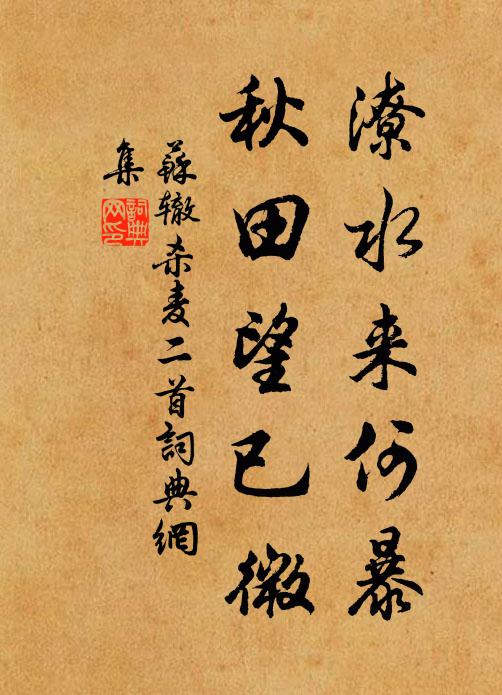 潦水来何暴
秋田望已微
蘇辙杀麦二首詞典網
集
詞典
网印